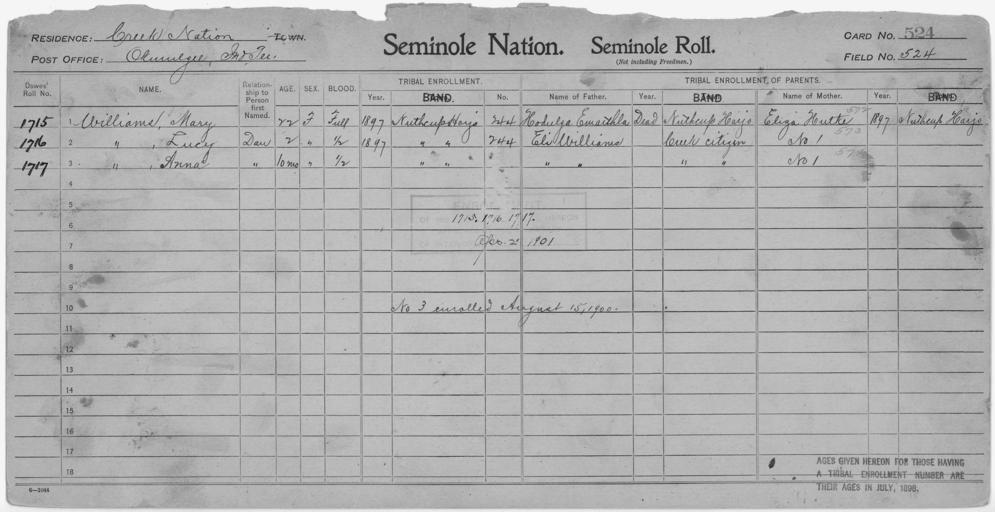 RESIDENCE: Creek Nation TOWN.
POST OFFICE: Okmulgee, Ind. Ter.
Seminole Nation. Seminole Roll.
(Not including Freedmen.)
CARD NO. 524
FIELD NO. 524
Dawes' Roll No. NAME. Relationship to Person first Named. AGE. SEX. BLOOD. TRIBAL ENROLLMENT. TRIBAL ENROLLMENT OF PARENTS.
Year. BAND. No. Name of Father. Year. BAND Name of Mother. Year. BAND
1715 1 Williams, Mary 22 F Full 1897 Nuthcup Harjo 244 Hodulga Emathla Dead Nuthcup Harjo Eliza 572 1897 Nuthcup Harjo
1716 2 " , Lucy Dau 2 " 1/2 1897 " " 244 Eli Williams Creek citizen No 1 573
1717 3 " , Anna " 10 mo " 1/2 " " " " " " No 1
4
5
6 1715. 1716. 1717.
7 2 1901
8
9
10 No 3 enrolled August 15, 1900.
11
12
13
14
15
16
17
18
AGES GIVEN HEREON FOR THOSE HAVING
A TRIBAL ENROLLMENT NUMBER ARE
THEIR AGES IN JULY, 1898.
6—2044